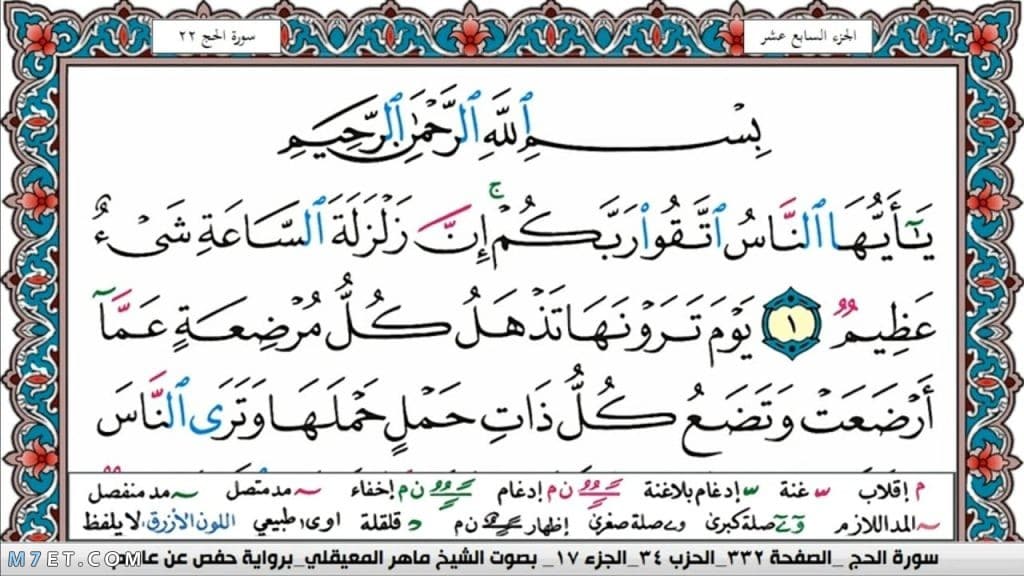 سورة الحج ٢٢
الجزء السابع عشر
بِسْمِ ٱللَّهِ ٱلرَّحْمَٰنِ ٱلرَّحِيمِ
يَٰٓأَيُّهَا ٱلنَّاسُ ٱتَّقُوا۟ رَبَّكُمْ ۚ إِنَّ زَلْزَلَةَ ٱلسَّاعَةِ شَىْءٌ
عَظِيمٌ ١ يَوْمَ تَرَوْنَهَا تَذْهَلُ كُلُّ مُرْضِعَةٍ عَمَّآ
أَرْضَعَتْ وَتَضَعُ كُلُّ ذَاتِ حَمْلٍ حَمْلَهَا وَتَرَى ٱلنَّاسَ
م إقلاب غنة إدغام بلاغنة ن م إدغام ن م إخفاء مد متصل مد منفصل
المد اللازم صلة كبرى صلة صغرى إظهار ن م قلقلة اوى طبيعي اللون الأزرق لا يلفظ
سورة الحج _الصفحة ٣٣٢_الحزب ٣٤_الجزء ١٧_ بصوت الشيخ ماهر المعيقلي_برواية حفص عن
M7ET.COM